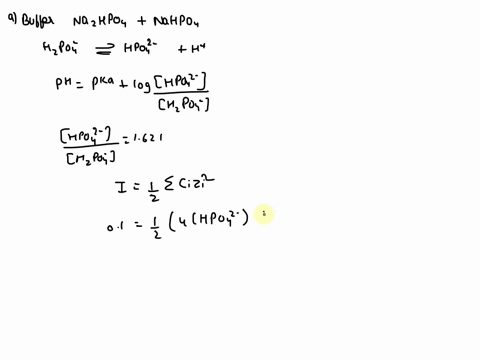 a) Buffer Na2HPO4 + NaHPO4
H2PO4⁻ ⇌ HPO4²⁻ + H⁺
PH = PKa + log [HPO4²⁻]/[H2PO4⁻]
[HPO4²⁻]/[H2PO4⁻] = 1.621
I = 1/2 Σ Cizi²
0.1 = 1/2 (4(HPO4²⁻)